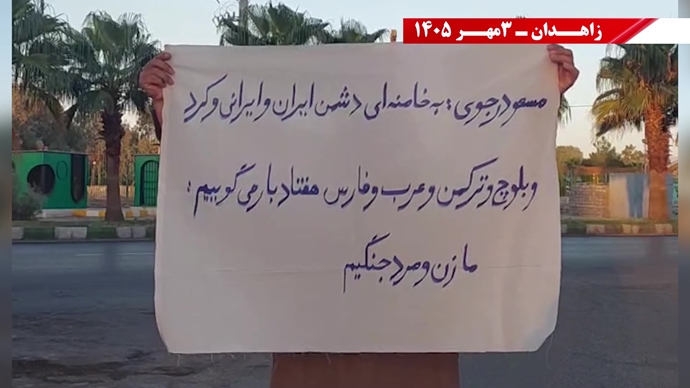 زاهدان ـ ۳مهـر ۱۴۰۵
مسعود رجوی: به خامنه‌ای دشمن ایران و ایرانی و کرد
و بلوچ و ترکمن و عرب و فارس هفتاد بار می گوییم:
ما زن و مرد جنگیم